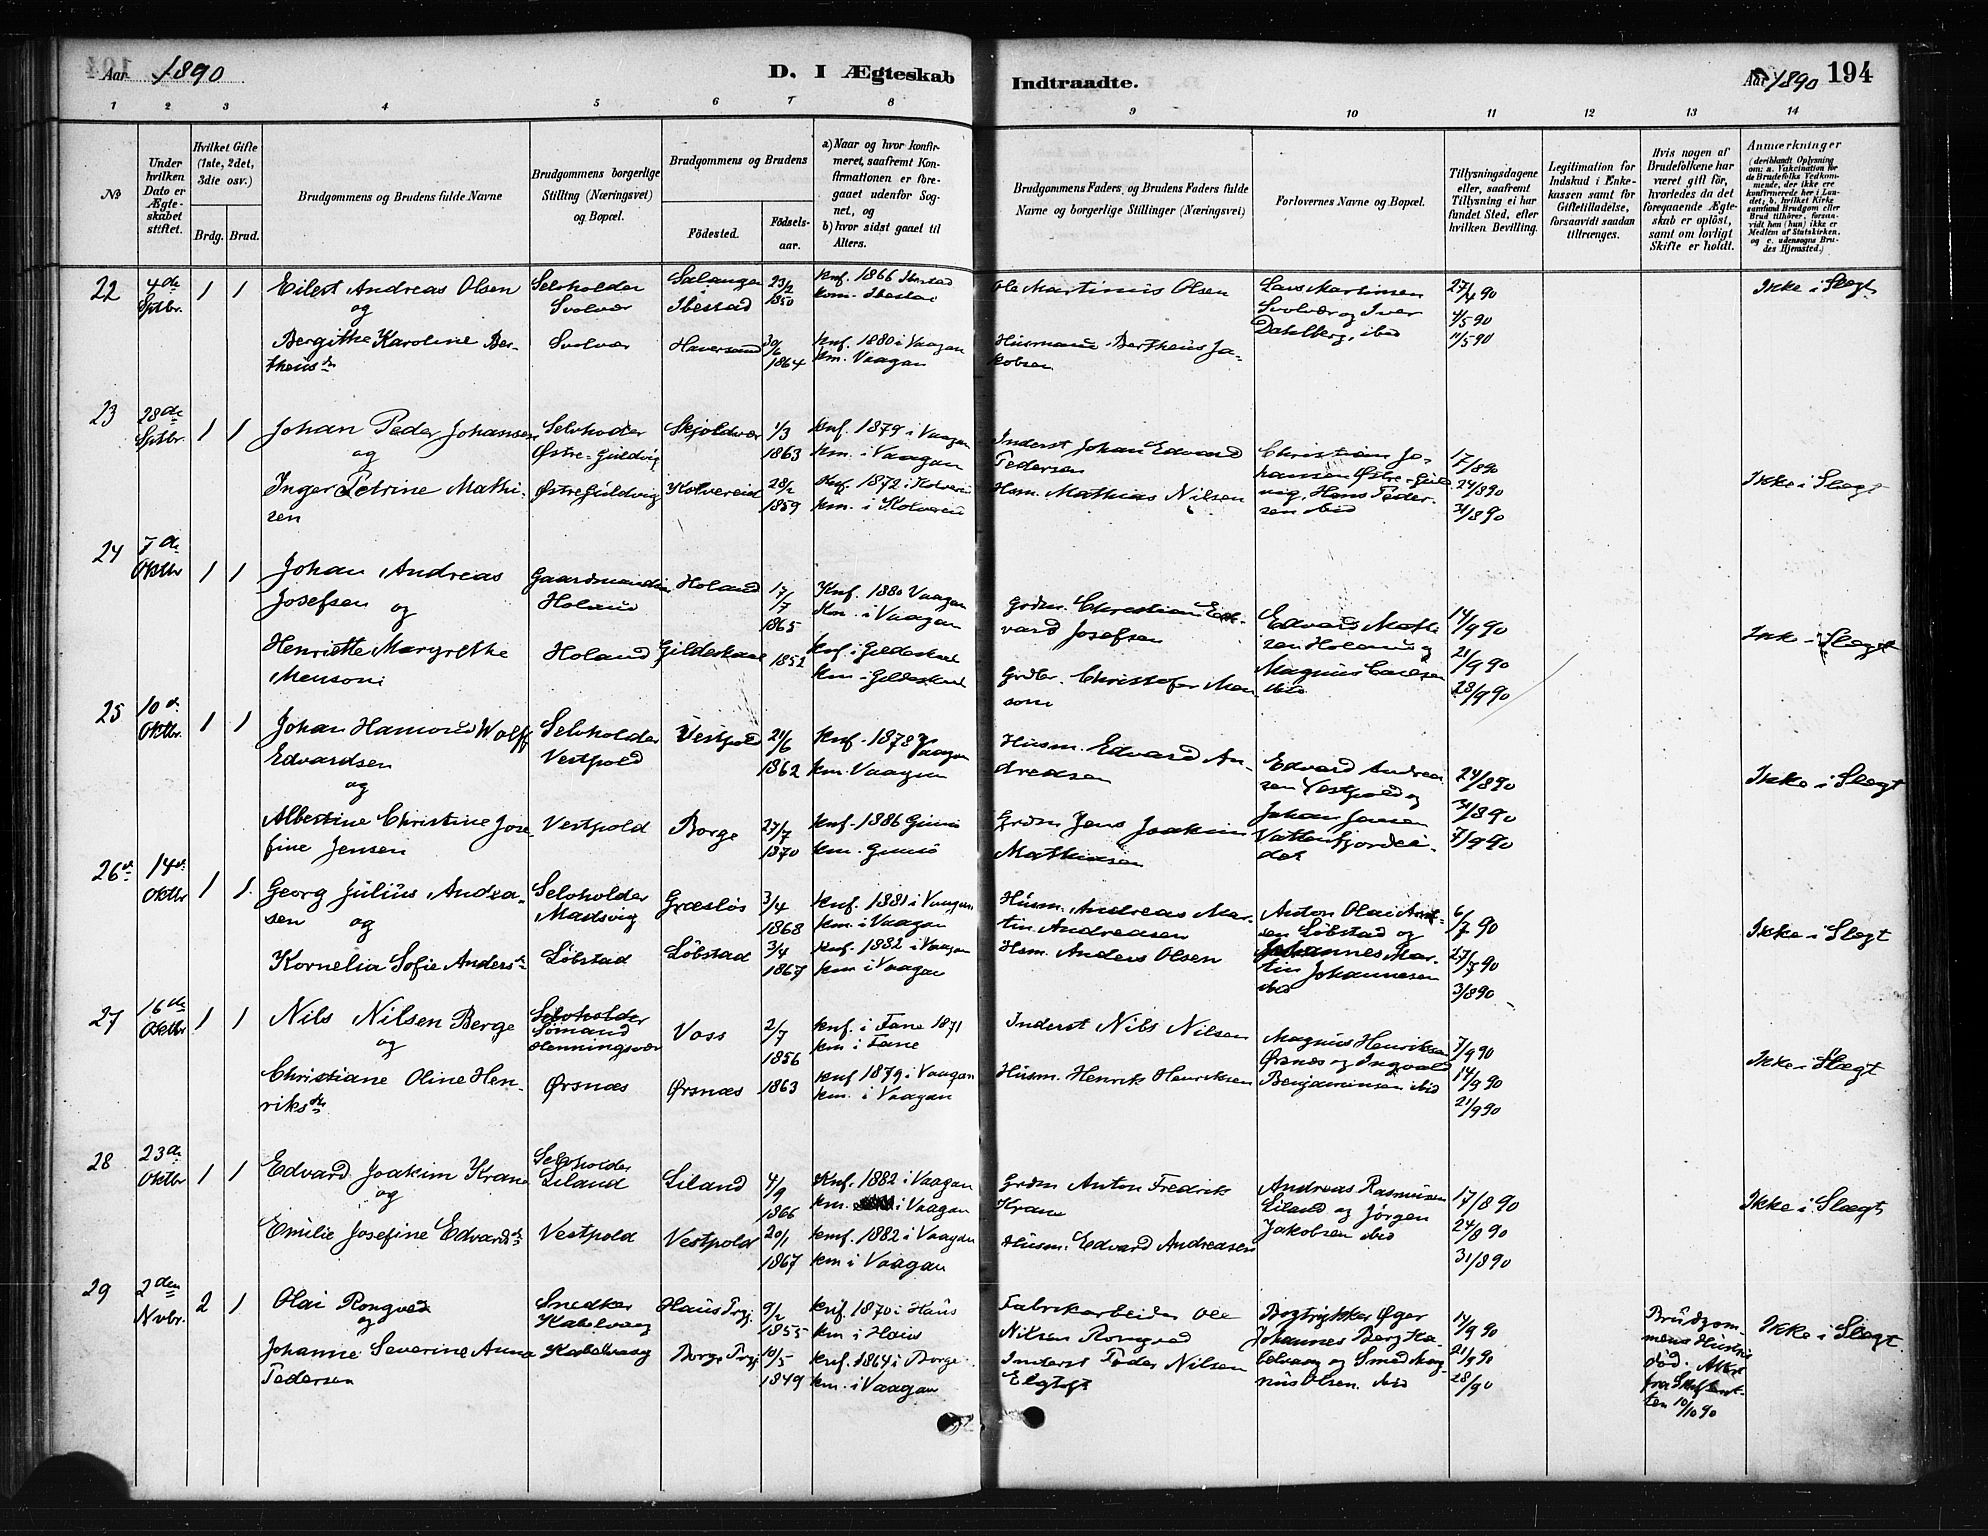 Aar 1890 D. I Ægteskab Indtraadte. Aar 1890 194
1 2 3 4 5 6 7 8 9 10 11 12 13 14
No
Under hvilken Dato er Ægteskabet stiftet.
Hvilket Gifte (1ste, 2det, 3die osv.)
Brdg. Brud.
Brudgommens og Brudens fulde Navne
Brudgommens borgerlige Stilling (Næringsvei) og Bopæl.
Brudgommens og Brudens
Födested. Födselsaar.
a) Naar og hvor konfirmeret, saafremt Konfirmationen er foregaaet udenfor Sognet, og
b) hvor sidst gaaet til Alters.
Brudgommens Faders og Brudens Faders fulde Navne og borgerlige Stillinger (Næringsvei)
Forlovernes Navne og Bopæl.
Tillysningsdagene eller, saafremt Tillysning ei har fundet Sted, efter hvilken Bevilling.
Legitimation for Indskud i Enkekassen samt for Giftetilladelse, forsaavidt saadan tiltrænges.
Hvis nogen af Brudefolkene har været gift för, hvorledes da det foregaaende Ægteskab er oplöst, samt om lovligt Skifte er holdt.
Anmærkninger
(deriblandt Oplysning om: a. Vakcination for de Brudefolks Vedkommende, der ikke ere konfirmerede her i Landet; b. hvilket Kirkesamfund Brudgom eller Brud tilhörer, forsaavidt han (hun) ikke er Medlem af Statskirken, og c. udensogns Brudes Hjemsted.)
22 4de Sptbr. 1 1
Eilert Andreas Olsen
og
Bergithe Karoline Ber-
theusdr
Selvholder
Svolvær
Svolvær
Salangen
Ibestad
23/2
1850
30/6
1864
Knf. 1866 Ibestad
Kom. Ibestad
Knf. 1880 i Vaagan
km. Vaagan
Ole Martinus Olsen
Husmand Bertheus Ja-
kobsen
Lars Martinsen
Svolvær og Iver
Dahlberg, ibid
27/4 90
4/5 90
11/5 90
Ikke i Slægt
23 28de Sptbr. 1 1
Johan Peder Johansen
og
Inger Petrine Mathi-
sen
Selvholder
Østre-Guldvig
Østre Guldvig
Skjoldvær
Kolvereid
1/3
1863
28/2
1859
Knf. 1879 i Vaagan
km. i Vaagan
Knf. 1872 i Kolvereid
km. i Kolvereid
Inderst Johan Edvard
Pedersen
Hsm. Mathias Nilsen
Christian Jo-
hansen Østre-Guld
vig, Hans Peder-
sen ibid
17/8 90
24/8 90
31/8 90
Ikke i Slægt
24 7de Oktbr 1 1
Johan Andreas
Josefsen og
Henriette Margrethe
Mensoni
Holand
Holand
Holand
Gildeskaal
17/7
1865
1852
Knf. 1880 Vaagan
Km. i Vaagan
Knf. i Gildeskaal
km. Gildeskaal
Grdm. Christian Ed-
vard Josefsen
Grdbr. Christofer Men
som
Edvard Math
sen Holand og
Magnus Carlsen
ibid
14/9 90
21/9 90
28/9 90
Ikke i Slægt
25 10de Oktbr. 1 1
Johan Hamond Wolff
Edvardsen
og
Albertine Christine Jose
fine Jensen
Selvholder
Vestpold
Vestpold
Vestpold
Borge
24/6
1862
27/7
1870
Knf. 1878 Vaagan
km. Vaagan
Knf. 1886 Gimsö
km. Gimsö
Husm. Edvard An-
dreasen
Grdm Jens Joakim
Mathiasen
Edvard Andrea
sen Vestpold og
Johan Jensen
Vatterfjordei-
det
24/8 90
31/8 90
7/9 90
Ikke i Slægt
26 14de Oktbr 1 1.
Georg Julius Andrea-
sen og
Kornelia Sofie Andersdr
Selvholder
Madsvig
Løbstad
Græsløs
Løbstad
3/4
1868
3/4
1867
Knf. 1881 i Vaagan
km. i Vaagan
Knf. 1882 i Vaagan
km i Vaagan
Husm. Andreas Mar-
tin Andreasen
Hsm. Anders Olsen
Anton Olai
sen Løbstad og
Johannes Mar-
tin Johannesen
ibid
6/7 90
27/7 90
3/8 90
Ikke i Slægt
27 16de Oktbr 1 1
Nils Nilsen Berge
og
Christiane Oline Hen-
riksdr
Selvholder
Sömand
Henningsvær
Ørsnæs
Voss
Ørsnæs
2/7
1856
1863
Knf. i Fane 1871
km i Fane
Knf 1879 i Vaagan
km. i Vaagan
Inderst Nils Nilsen
Husm. Henrik Henriksen
Magnus Henriksen
Ørsnæs og Ingvald
Benjaminsen ibid
7/9 90
14/9 90
21/9 90
Ikke i Slægt
28 23de Oktbr 1 1
Edvard Joakim Krane
og
Emilie Josefine Edvardsdr
Selvholder
Liland
Vestpold
Liland
Vestpold
4/9
1866
20/1
1867
Knf. 1882 i Vaagan
km. i Vaagan
kmf. 1882 i Vaagan
km i Vaagan
Grdm Anton Fredrik
Krane
Husm. Edvard Andreasen
Andreas Rasmusen
Liland og Jörgen
Jakobsen ibid
17/8 90
24/8 90
31/8 90
Ikke i Slægt
29 2den Nvbr. 2 1
Olai Rongved
og
Johanne Severine Anna
Pedersen
Snedker
Kabelvaag
Kabelvaag
Haus Prgj.
Borge Prgj
9/2
1855
10/5
1849
Knf. 1870 i Haus
km i Haus
Knf. 1864 i Borge
km. i Vaagan
Fabrikarbeider Ole
Nilsen Rongved
Inderst Peder Nilsen
Elgtoft
Bogtrykker Øger
Johannes Berg Ka-
belvaag og Smed Mag-
nus Olsen ibid
14/9 90
21/9 90
28/9 90
Brudgom-
mens Hustru
död. Attest
fra Skifteret-
ten 10/10 90
Ikke i Slægt